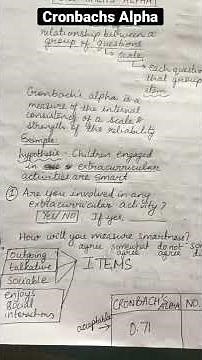 Cronbachs Alpha
relationship between a
group of questions
↳ scale
↳ Each question
that group
item
Cronbach's alpha is a
measure of the internal
consistency of a scale &
strength of the reliability
Example:
hypothesis - Children engaged
in extracurricular
activities are smart
① Are you involved in any
extracurricular activity?
YES/NO If yes,
How will you measure smartness?
agree somewhat do not
agree agree
Outgoing
talkative
Sociable
enjoys
social
interactions
ITEMS
CRONBACH'S ALPHA NO.
acceptable
0.71